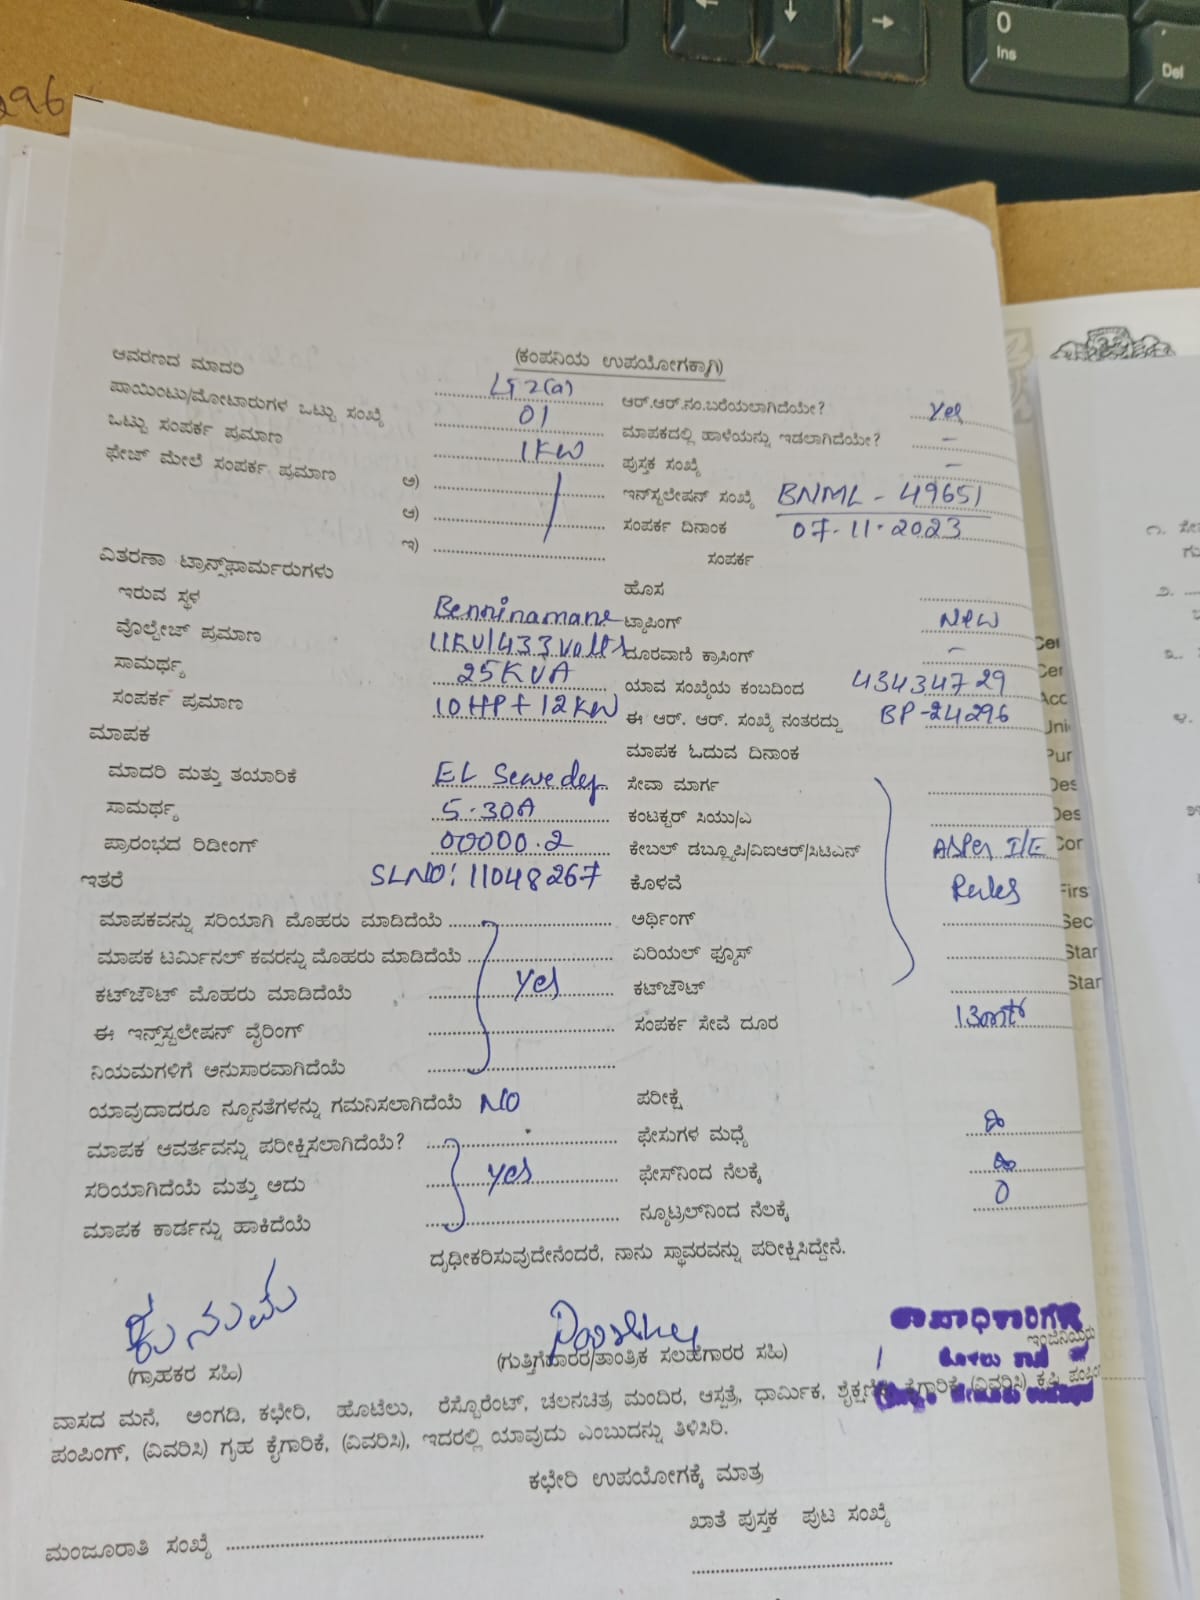 296
0
Ins
Del
(ಕಂಪನಿಯ ಉಪಯೋಗಕ್ಕಾಗಿ)
ಆವರಣದ ಮಾದರಿ LT 2(a) ಆರ್.ಆರ್.ನಂ.ಬರೆಯಲಾಗಿದೆಯೇ? Yes
ಪಾಯಿಂಟು/ಮೋಟಾರುಗಳ ಒಟ್ಟು ಸಂಖ್ಯೆ 01 ಮಾಪಕದಲ್ಲಿ ಹಾಳೆಯನ್ನು ಇಡಲಾಗಿದೆಯೇ? -
ಒಟ್ಟು ಸಂಪರ್ಕ ಪ್ರಮಾಣ 1KW ಪುಸ್ತಕ ಸಂಖ್ಯೆ -
ಫೇಜ್ ಮೇಲೆ ಸಂಪರ್ಕ ಪ್ರಮಾಣ ಅ) ಇನ್‌ಸ್ಟಲೇಷನ್ ಸಂಖ್ಯೆ BNML - 49651
ಆ) ಸಂಪರ್ಕ ದಿನಾಂಕ 07-11-2023
ಇ) ಸಂಪರ್ಕ
ವಿತರಣಾ ಟ್ರಾನ್ಸ್‌ಫಾರ್ಮರುಗಳು ಹೊಸ
ಇರುವ ಸ್ಥಳ Benninamane ಟ್ಯಾಪಿಂಗ್ New
ವೊಲ್ಟೇಜ್ ಪ್ರಮಾಣ 11KV/433 volts ದೂರವಾಣಿ ಕ್ರಾಸಿಂಗ್ -
ಸಾಮರ್ಥ್ಯ 25KVA ಯಾವ ಸಂಖ್ಯೆಯ ಕಂಬದಿಂದ 43434729
ಸಂಪರ್ಕ ಪ್ರಮಾಣ 10HP + 12KW ಈ ಆರ್. ಆರ್. ಸಂಖ್ಯೆ ನಂತರದ್ದು BP-24296
ಮಾಪಕ ಮಾಪಕ ಓದುವ ದಿನಾಂಕ
ಮಾದರಿ ಮತ್ತು ತಯಾರಿಕೆ EL Sewedey ಸೇವಾ ಮಾರ್ಗ
ಸಾಮರ್ಥ್ಯ 5-30A ಕಂಟಕ್ಟರ್ ಸಿಯು/ಎ
ಪ್ರಾರಂಭದ ರಿಡೀಂಗ್ 00000.2 ಕೇಬಲ್ ಡಬ್ಲ್ಯೂಪಿ/ವಿಐಆರ್/ಸಿಟಿಎನ್ AsPer I/E
ಇತರೆ SLNO: 11048267 ಕೊಳವೆ Rules
ಮಾಪಕವನ್ನು ಸರಿಯಾಗಿ ಮೊಹರು ಮಾಡಿದೆಯೆ ಅರ್ಥಿಂಗ್
ಮಾಪಕ ಟರ್ಮಿನಲ್ ಕವರನ್ನು ಮೊಹರು ಮಾಡಿದೆಯೆ ಏರಿಯಲ್ ಫ್ಯೂಸ್
ಕಟ್‌ಔಟ್ ಮೊಹರು ಮಾಡಿದೆಯೆ Yes ಕಟ್‌ಔಟ್
ಈ ಇನ್‌ಸ್ಟಲೇಷನ್ ವೈರಿಂಗ್ ಸಂಪರ್ಕ ಸೇವೆ ದೂರ 13mt
ನಿಯಮಗಳಿಗೆ ಅನುಸಾರವಾಗಿದೆಯೆ
ಯಾವುದಾದರೂ ನ್ಯೂನತೆಗಳನ್ನು ಗಮನಿಸಲಾಗಿದೆಯೆ NO ಪರೀಕ್ಷೆ
ಮಾಪಕ ಆವರ್ತವನ್ನು ಪರೀಕ್ಷಿಸಲಾಗಿದೆಯೆ? ಫೇಸುಗಳ ಮಧ್ಯೆ ∞
ಸರಿಯಾಗಿದೆಯೆ ಮತ್ತು ಅದು Yes ಫೇಸ್‌ನಿಂದ ನೆಲಕ್ಕೆ ∞
ಮಾಪಕ ಕಾರ್ಡನ್ನು ಹಾಕಿದೆಯೆ ನ್ಯೂಟ್ರಲ್‌ನಿಂದ ನೆಲಕ್ಕೆ 0
ದೃಢೀಕರಿಸುವುದೇನೆಂದರೆ, ನಾನು ಸ್ಥಾವರವನ್ನು ಪರೀಕ್ಷಿಸಿದ್ದೇನೆ.
ಕುಸುಮ
(ಗ್ರಾಹಕರ ಸಹಿ) (ಗುತ್ತಿಗೆದಾರರ/ತಾಂತ್ರಿಕ ಸಲಹೆಗಾರರ ಸಹಿ)
ವಾಸದ ಮನೆ, ಅಂಗಡಿ, ಕಛೇರಿ, ಹೊಟೆಲು, ರೆಸ್ಟೊರೆಂಟ್, ಚಲನಚಿತ್ರ ಮಂದಿರ, ಆಸ್ಪತ್ರೆ, ಧಾರ್ಮಿಕ, ಶೈಕ್ಷಣಿಕ, ಕೈಗಾರಿಕೆ (ವಿವರಿಸಿ) ಕೃಷಿ ಪಂಪಿಂಗ್
ಪಂಪಿಂಗ್, (ವಿವರಿಸಿ) ಗೃಹ ಕೈಗಾರಿಕೆ, (ವಿವರಿಸಿ), ಇದರಲ್ಲಿ ಯಾವುದು ಎಂಬುದನ್ನು ತಿಳಿಸಿರಿ.
ಕಛೇರಿ ಉಪಯೋಗಕ್ಕೆ ಮಾತ್ರ
ಮಂಜೂರಾತಿ ಸಂಖ್ಯೆ ಖಾತೆ ಪುಸ್ತಕ ಪುಟ ಸಂಖ್ಯೆ